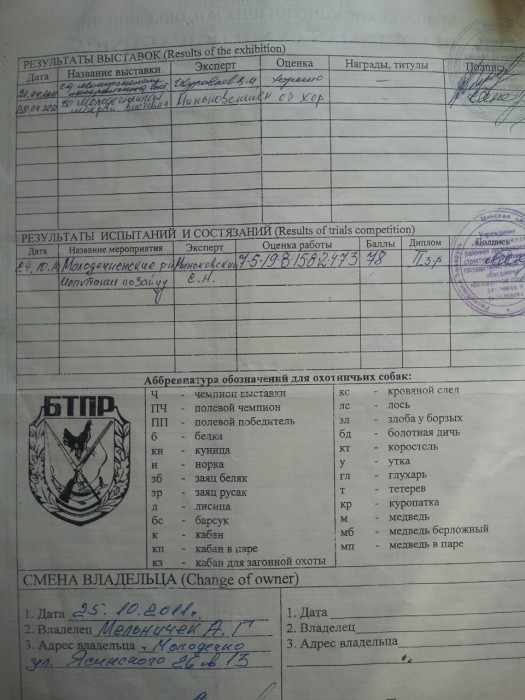 РЕЗУЛЬТАТЫ ВЫСТАВОК (Results of the exhibition)
Дата Название выставки Эксперт Оценка Награды, титулы Подпись
Хорошо —
оч хор
РЕЗУЛЬТАТЫ ИСПЫТАНИЙ И СОСТЯЗАНИЙ (Results of trials competition)
Дата Название мероприятия Эксперт Оценка работы Баллы Диплом Подпись
Молодечненские 78
Испытания по зайцу Е.Н.
Аббревиатура обозначений для охотничьих собак:
БТПР
Ч - чемпион выставки
ПЧ - полевой чемпион
ПП - полевой победитель
б - белка
кн - куница
н - норка
зб - заяц беляк
зр - заяц русак
л - лисица
бс - барсук
к - кабан
кп - кабан в паре
кз - кабан для загонной охоты
кс - кровяной след
лс - лось
зл - злоба у борзых
бд - болотная дичь
кт - коростель
у - утка
гл - глухарь
т - тетерев
кр - куропатка
м - медведь
мб - медведь берложный
мп - медведь в паре
СМЕНА ВЛАДЕЛЬЦА (Change of owner)
1. Дата 25. 10. 2011г.
2. Владелец Мельничек А. Г
3. Адрес владельца г. Молодечно
ул. Ясинского
1. Дата
2. Владелец
3. Адрес владельца